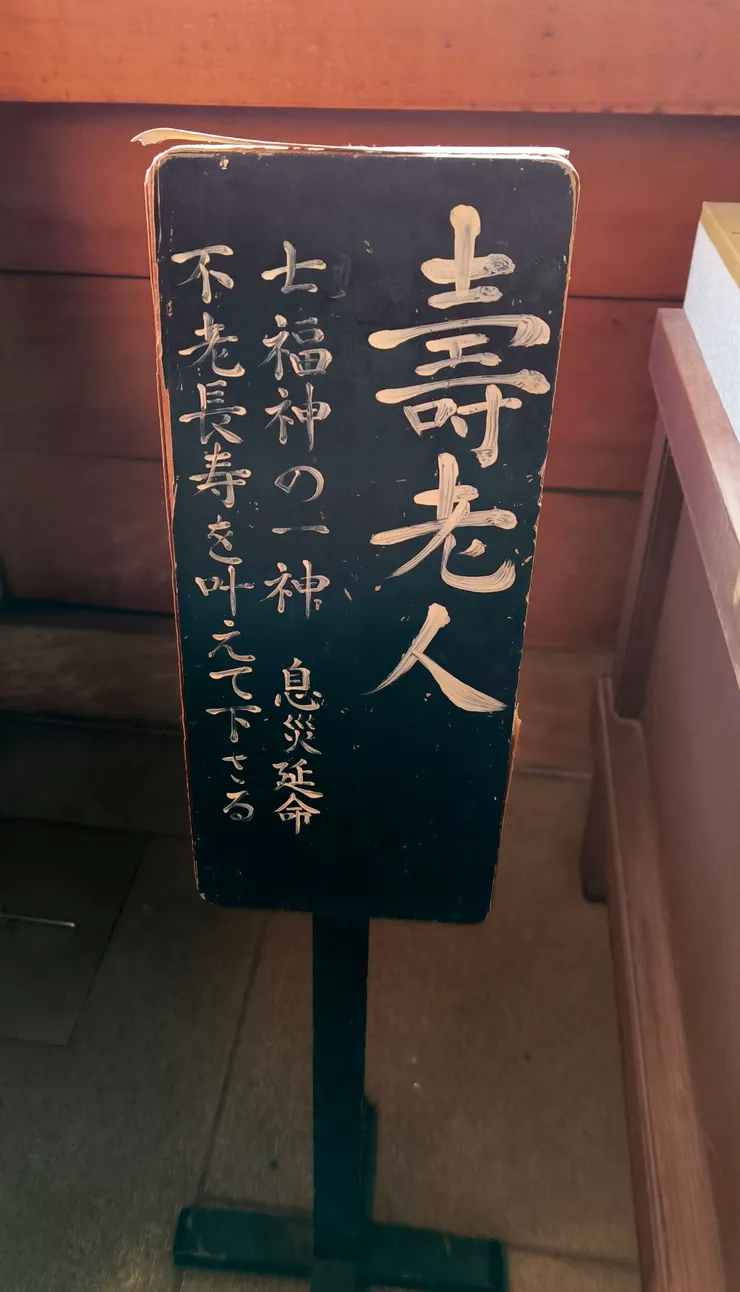 壽老人
七福神の一神 息災延命
不老長寿を叶えて下さる